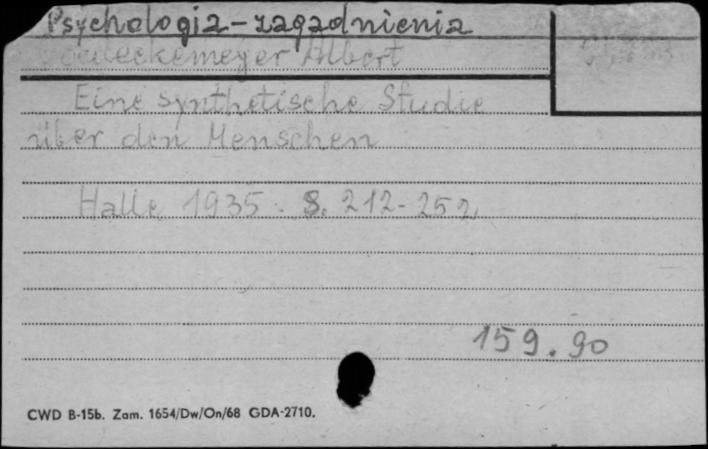 Psychologia-zagadnienia
Goedeckemeyer Albert
Eine synthetische Studie
über den Menschen
Halle 1935. S. 212-252,
159.90
CWD B-15b. Zam. 1654/Dw/On/68 GDA-2710.